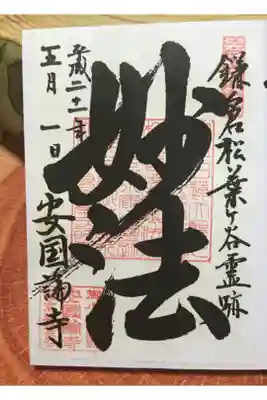 鎌倉松葉ヶ谷霊跡
妙法
平成二十一年
五月一日
安国論寺